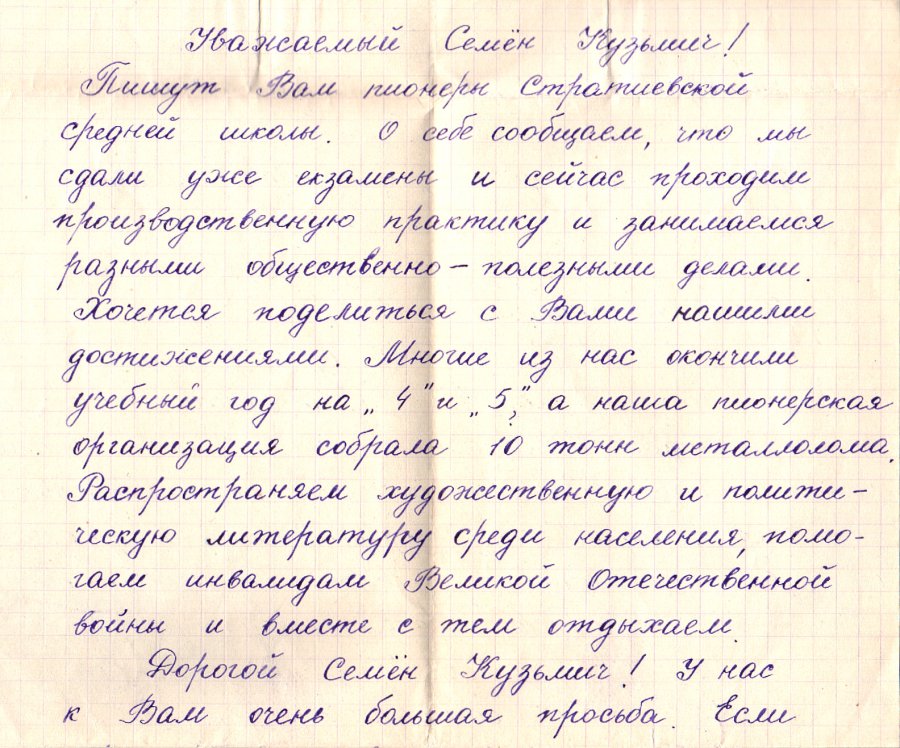 Уважаемый Семён Кузьмич!
Пишут Вам пионеры Стратиевской
средней школы. О себе сообщаем, что мы
сдали уже екзамены и сейчас проходим
производственную практику и занимаемся
разными общественно-полезными делами.
Хочется поделиться с Вами нашими
достижениями. Многие из нас окончили
учебный год на „4" и „5", а наша пионерская
организация собрала 10 тонн металлолома.
Распространяем художественную и полити-
ческую литературу среди населения, помо-
гаем инвалидам Великой Отечественной
войны и вместе с тем отдыхаем.
Дорогой Семён Кузьмич! У нас
к Вам очень большая просьба. Если